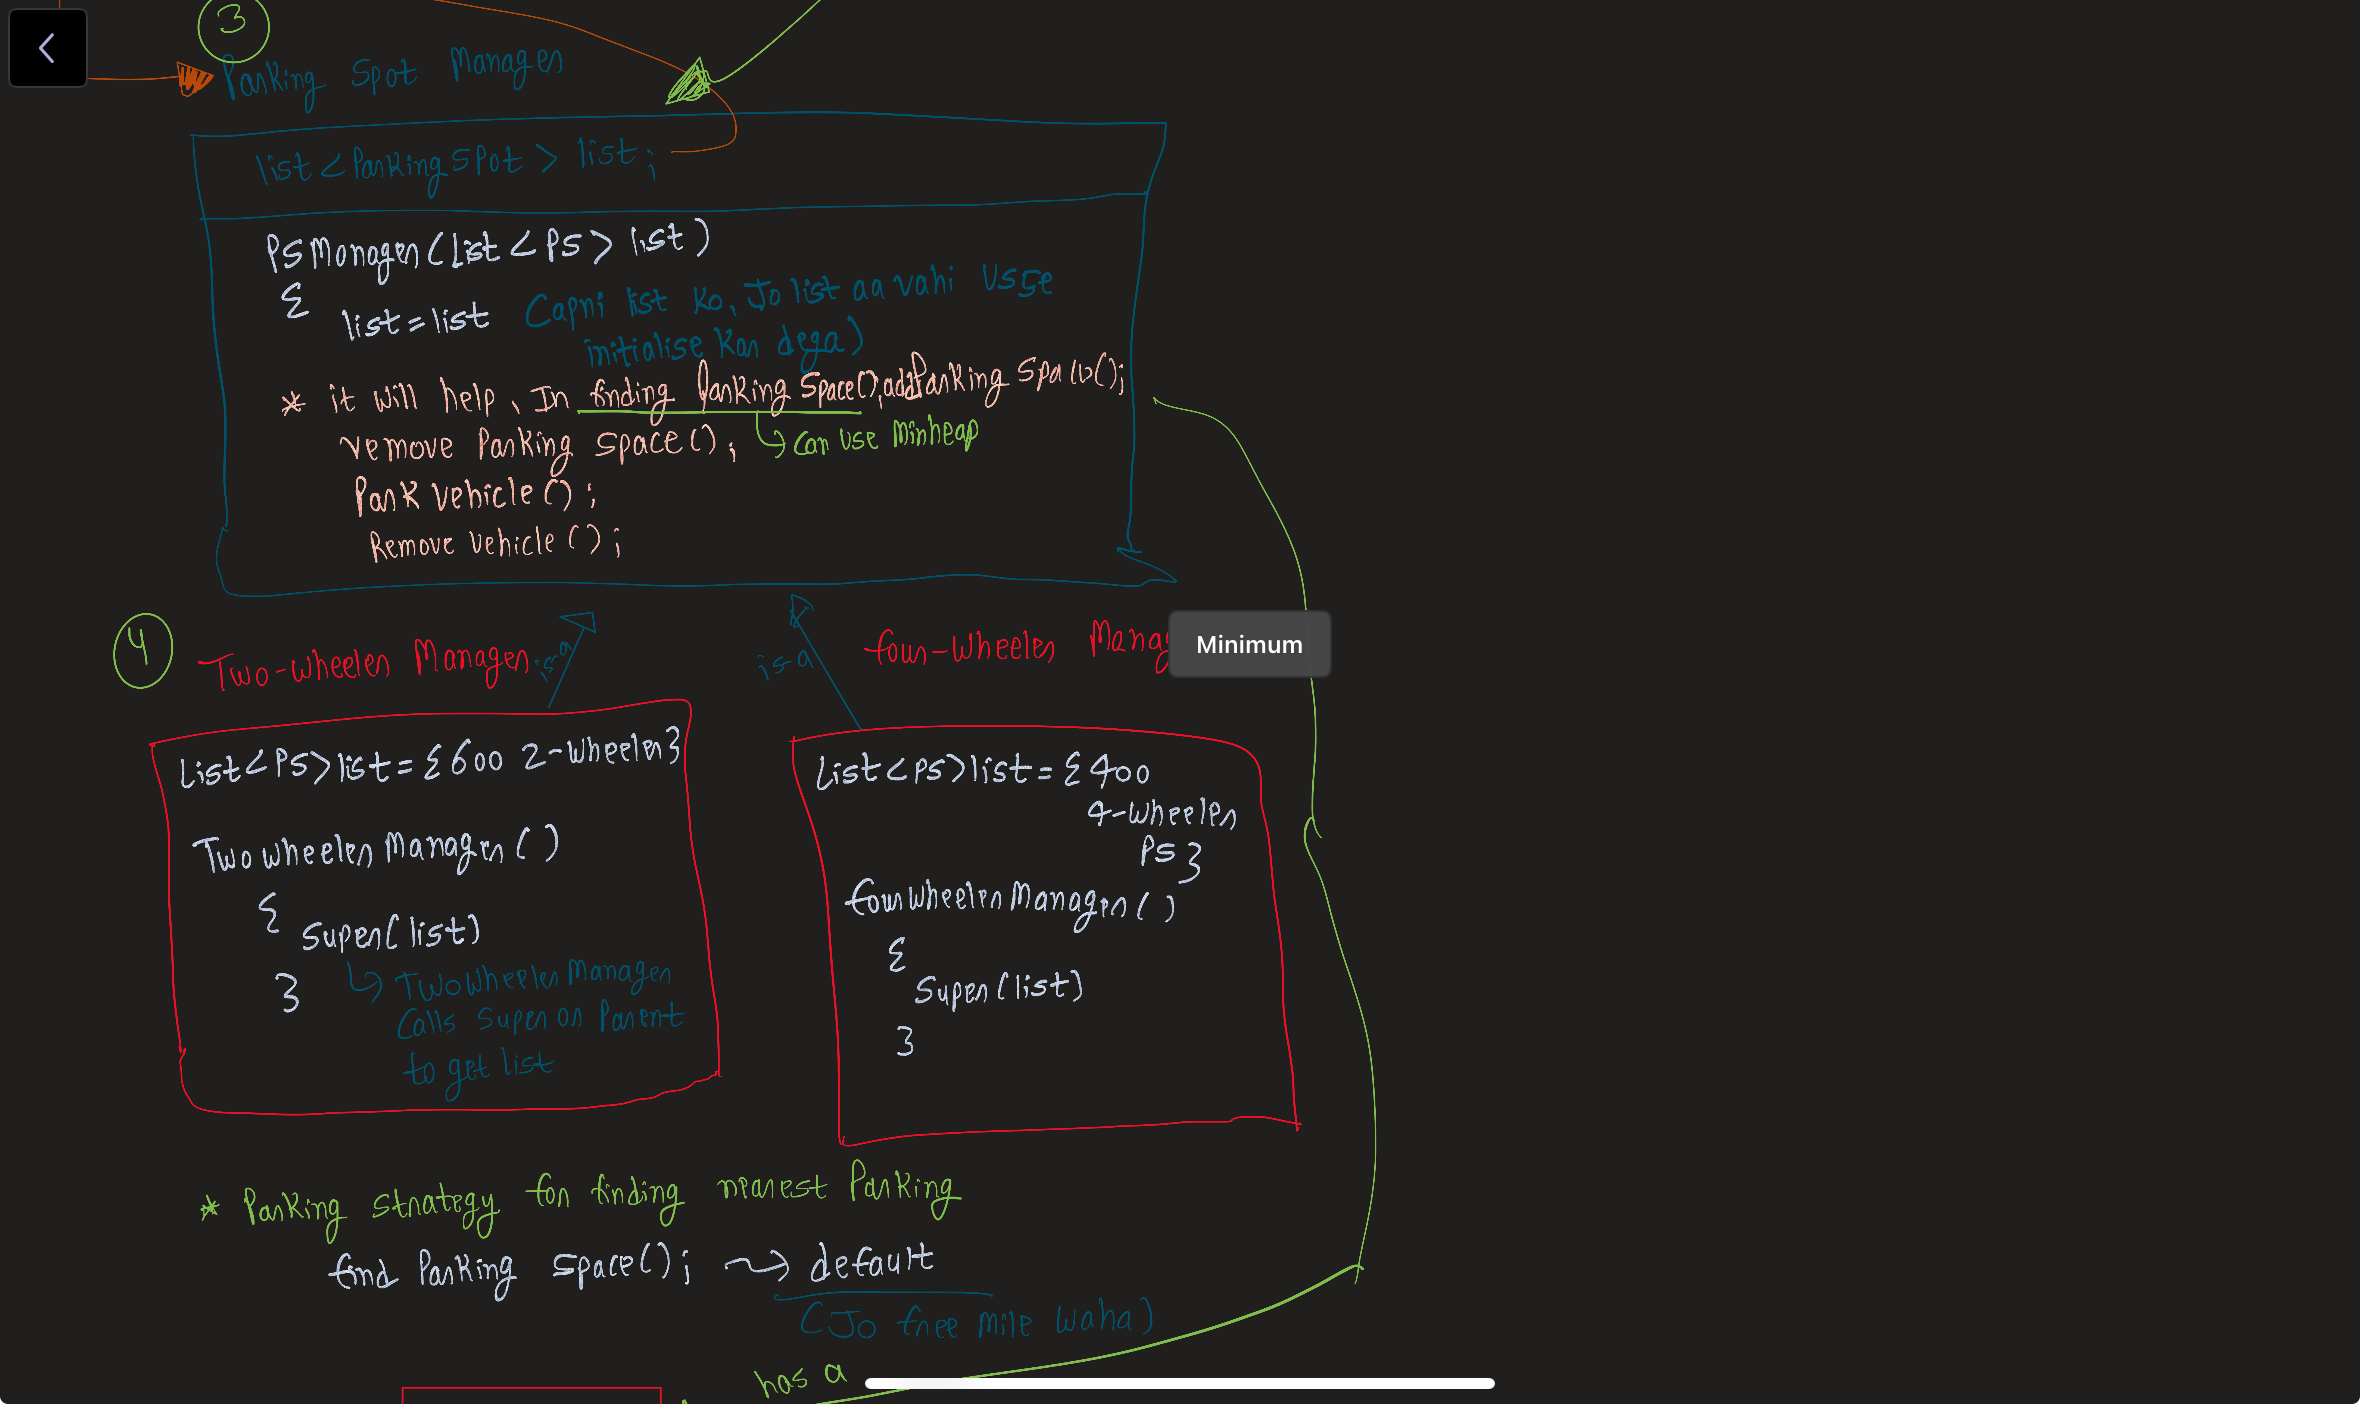 3
Parking Spot Manager
list<Parking Spot> list;
PSManager(List<PS> list)
{
list=list (apni list ko, Jo list aa vahi usse
initialise kar dega)
* it will help, In finding Parking Space(), addParking Space();
remove Parking space(); ↳ can use Minheap
Park vehicle();
Remove vehicle();
4
Two-wheeler Manager
is-a
is-a
four-wheeler Manag
Minimum
List<PS>list={600 2-wheeler}
Two wheeler Manager()
{
Super(list)
}
↳ TwoWheeler Manager
Calls super on Parent
to get list
List<PS>list={400
4-wheeler
PS}
four wheeler Manager()
{
Super(list)
}
* Parking strategy for finding nearest Parking
find Parking space(); → default
(Jo free mile waha)
has a